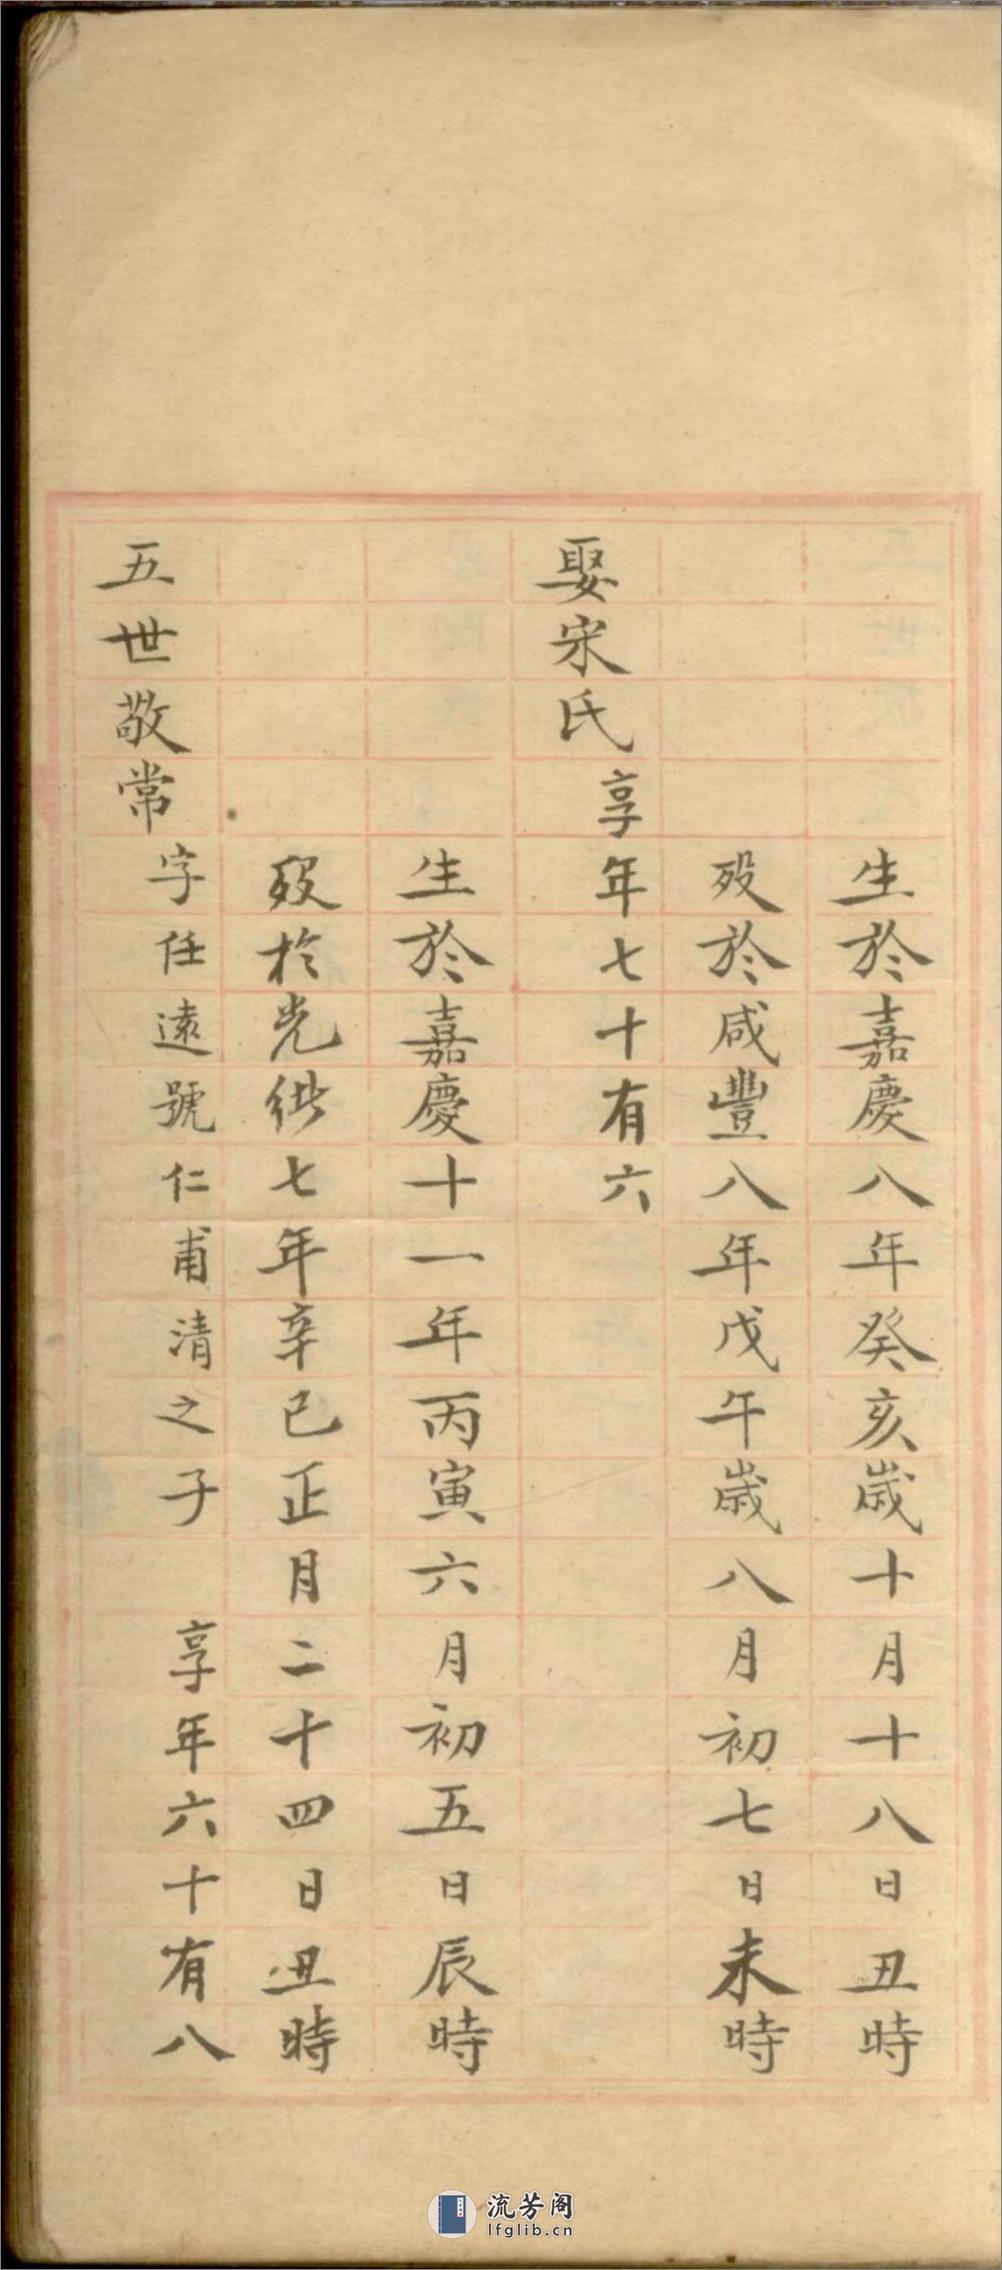 生於嘉慶八年癸亥歲十月十八日丑時
歿於咸豐八年戊午歲八月初七日未時
娶宋氏 享年七十有六
生於嘉慶十一年丙寅六月初五日辰時
歿於光緒七年辛巳正月二十四日丑時
五世敬常 字任遠號仁甫清之子 享年六十有八
流芳阁
lfglib.cn